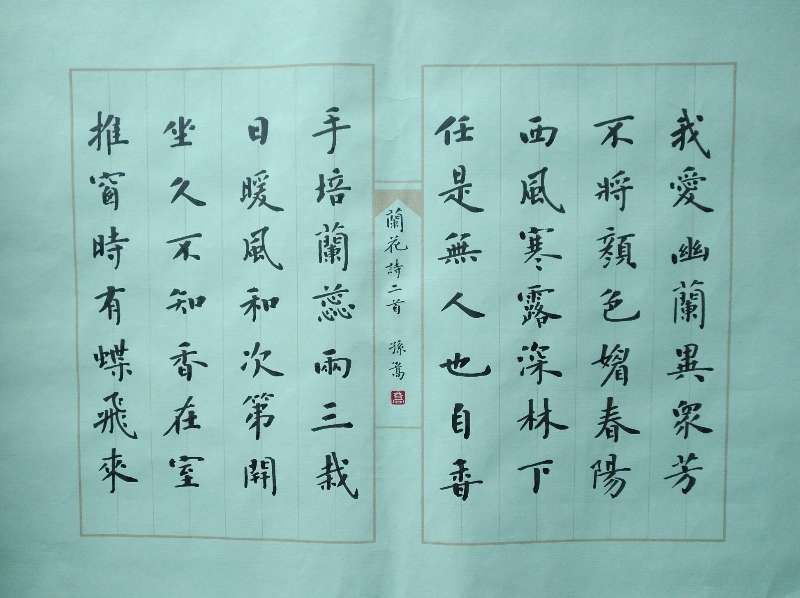 我愛幽蘭異眾芳
不將顏色媚春陽
西風寒露深林下
任是無人也自香
蘭花詩二首 孫
手培蘭蕊兩三栽
日暖風和次第開
坐久不知香在室
推窗時有蝶飛來